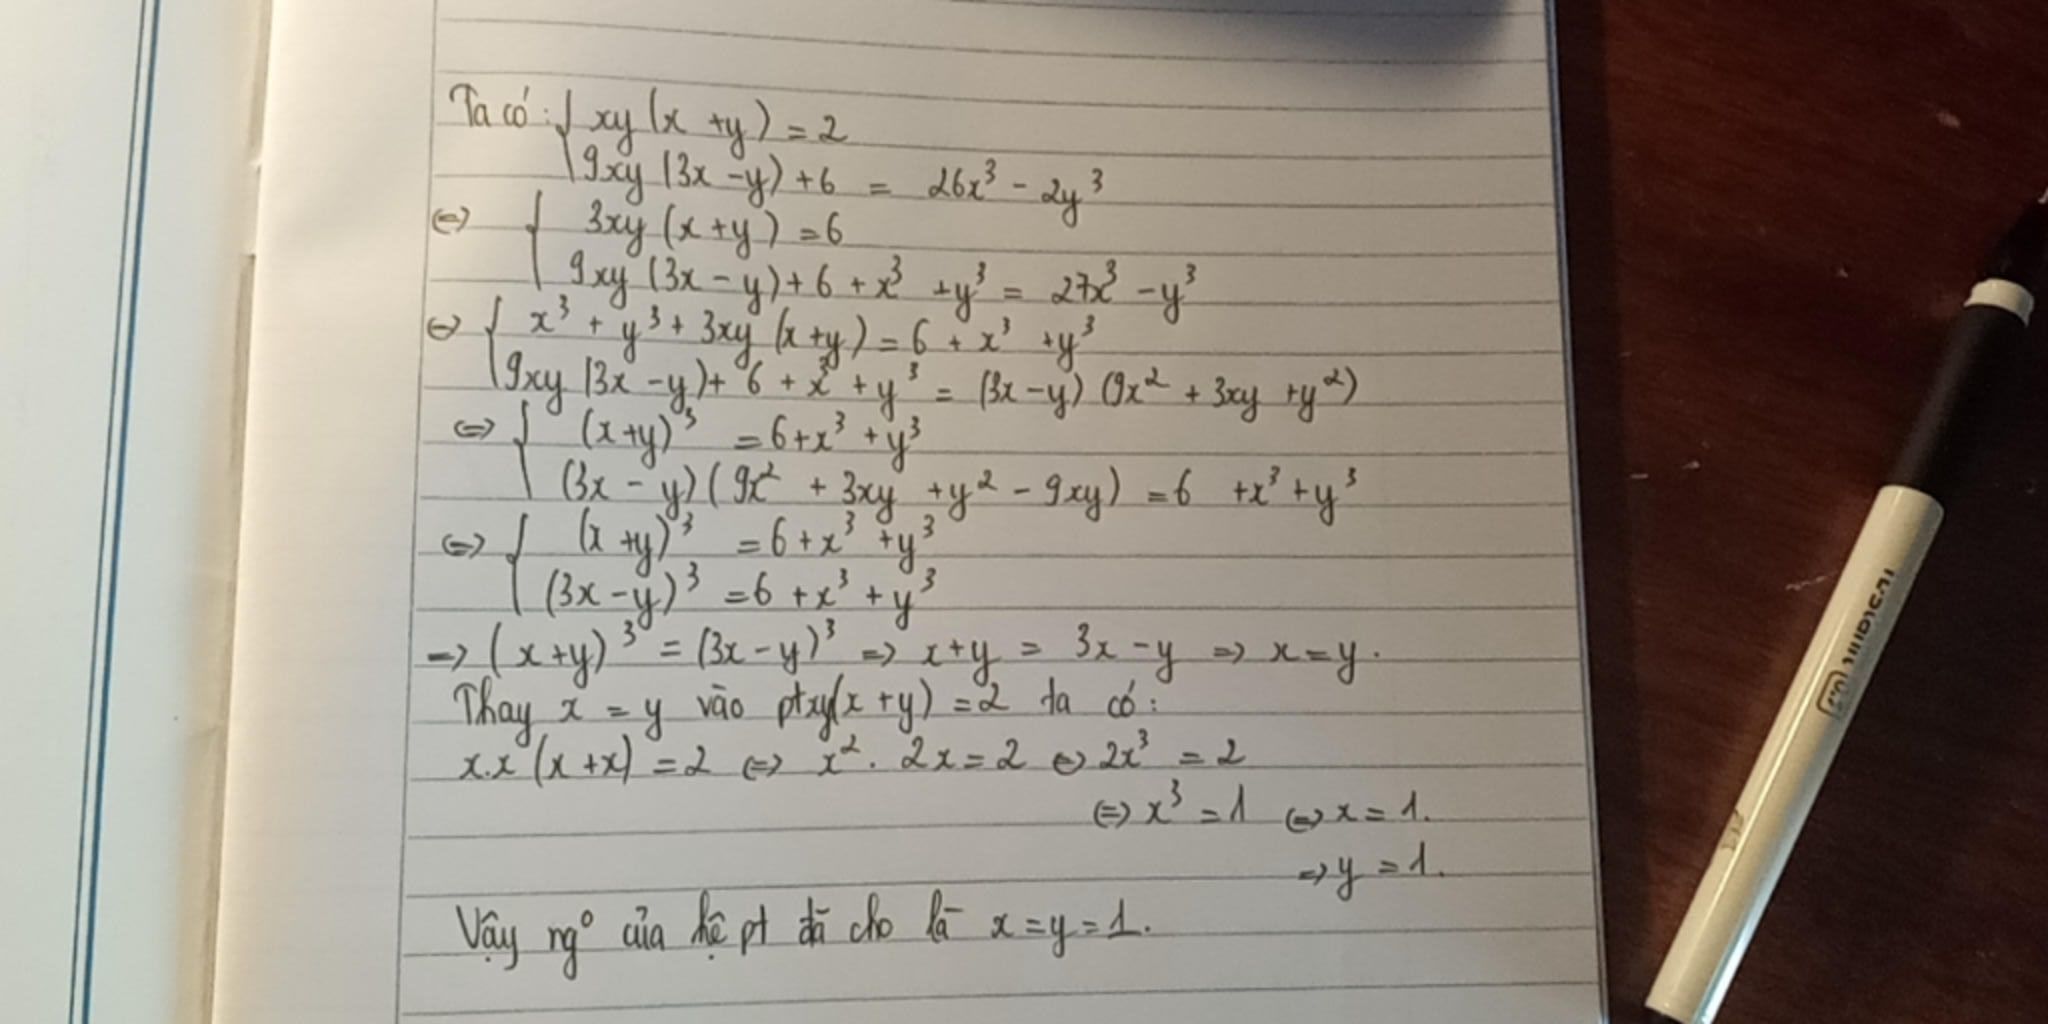 Ta có: { xy(x + y) = 2
9xy(3x - y) + 6 = 26x³ - 2y³
⇔ { 3xy(x + y) = 6
9xy(3x - y) + 6 + x³ + y³ = 27x³ - y³
⇔ { x³ + y³ + 3xy(x + y) = 6 + x³ + y³
9xy(3x - y) + 6 + x³ + y³ = (3x - y)(9x² + 3xy + y²)
⇔ { (x + y)³ = 6 + x³ + y³
(3x - y)(9x² + 3xy + y² - 9xy) = 6 + x³ + y³
⇔ { (x + y)³ = 6 + x³ + y³
(3x - y)³ = 6 + x³ + y³
⇒ (x + y)³ = (3x - y)³ ⇒ x + y = 3x - y ⇒ x = y.
Thay x = y vào pt xy(x + y) = 2 ta có:
x.x(x + x) = 2 ⇔ x². 2x = 2 ⇔ 2x³ = 2
⇔ x³ = 1 ⇔ x = 1.
⇒ y = 1.
Vậy ng⁰ của hệ pt đã cho là x = y = 1.